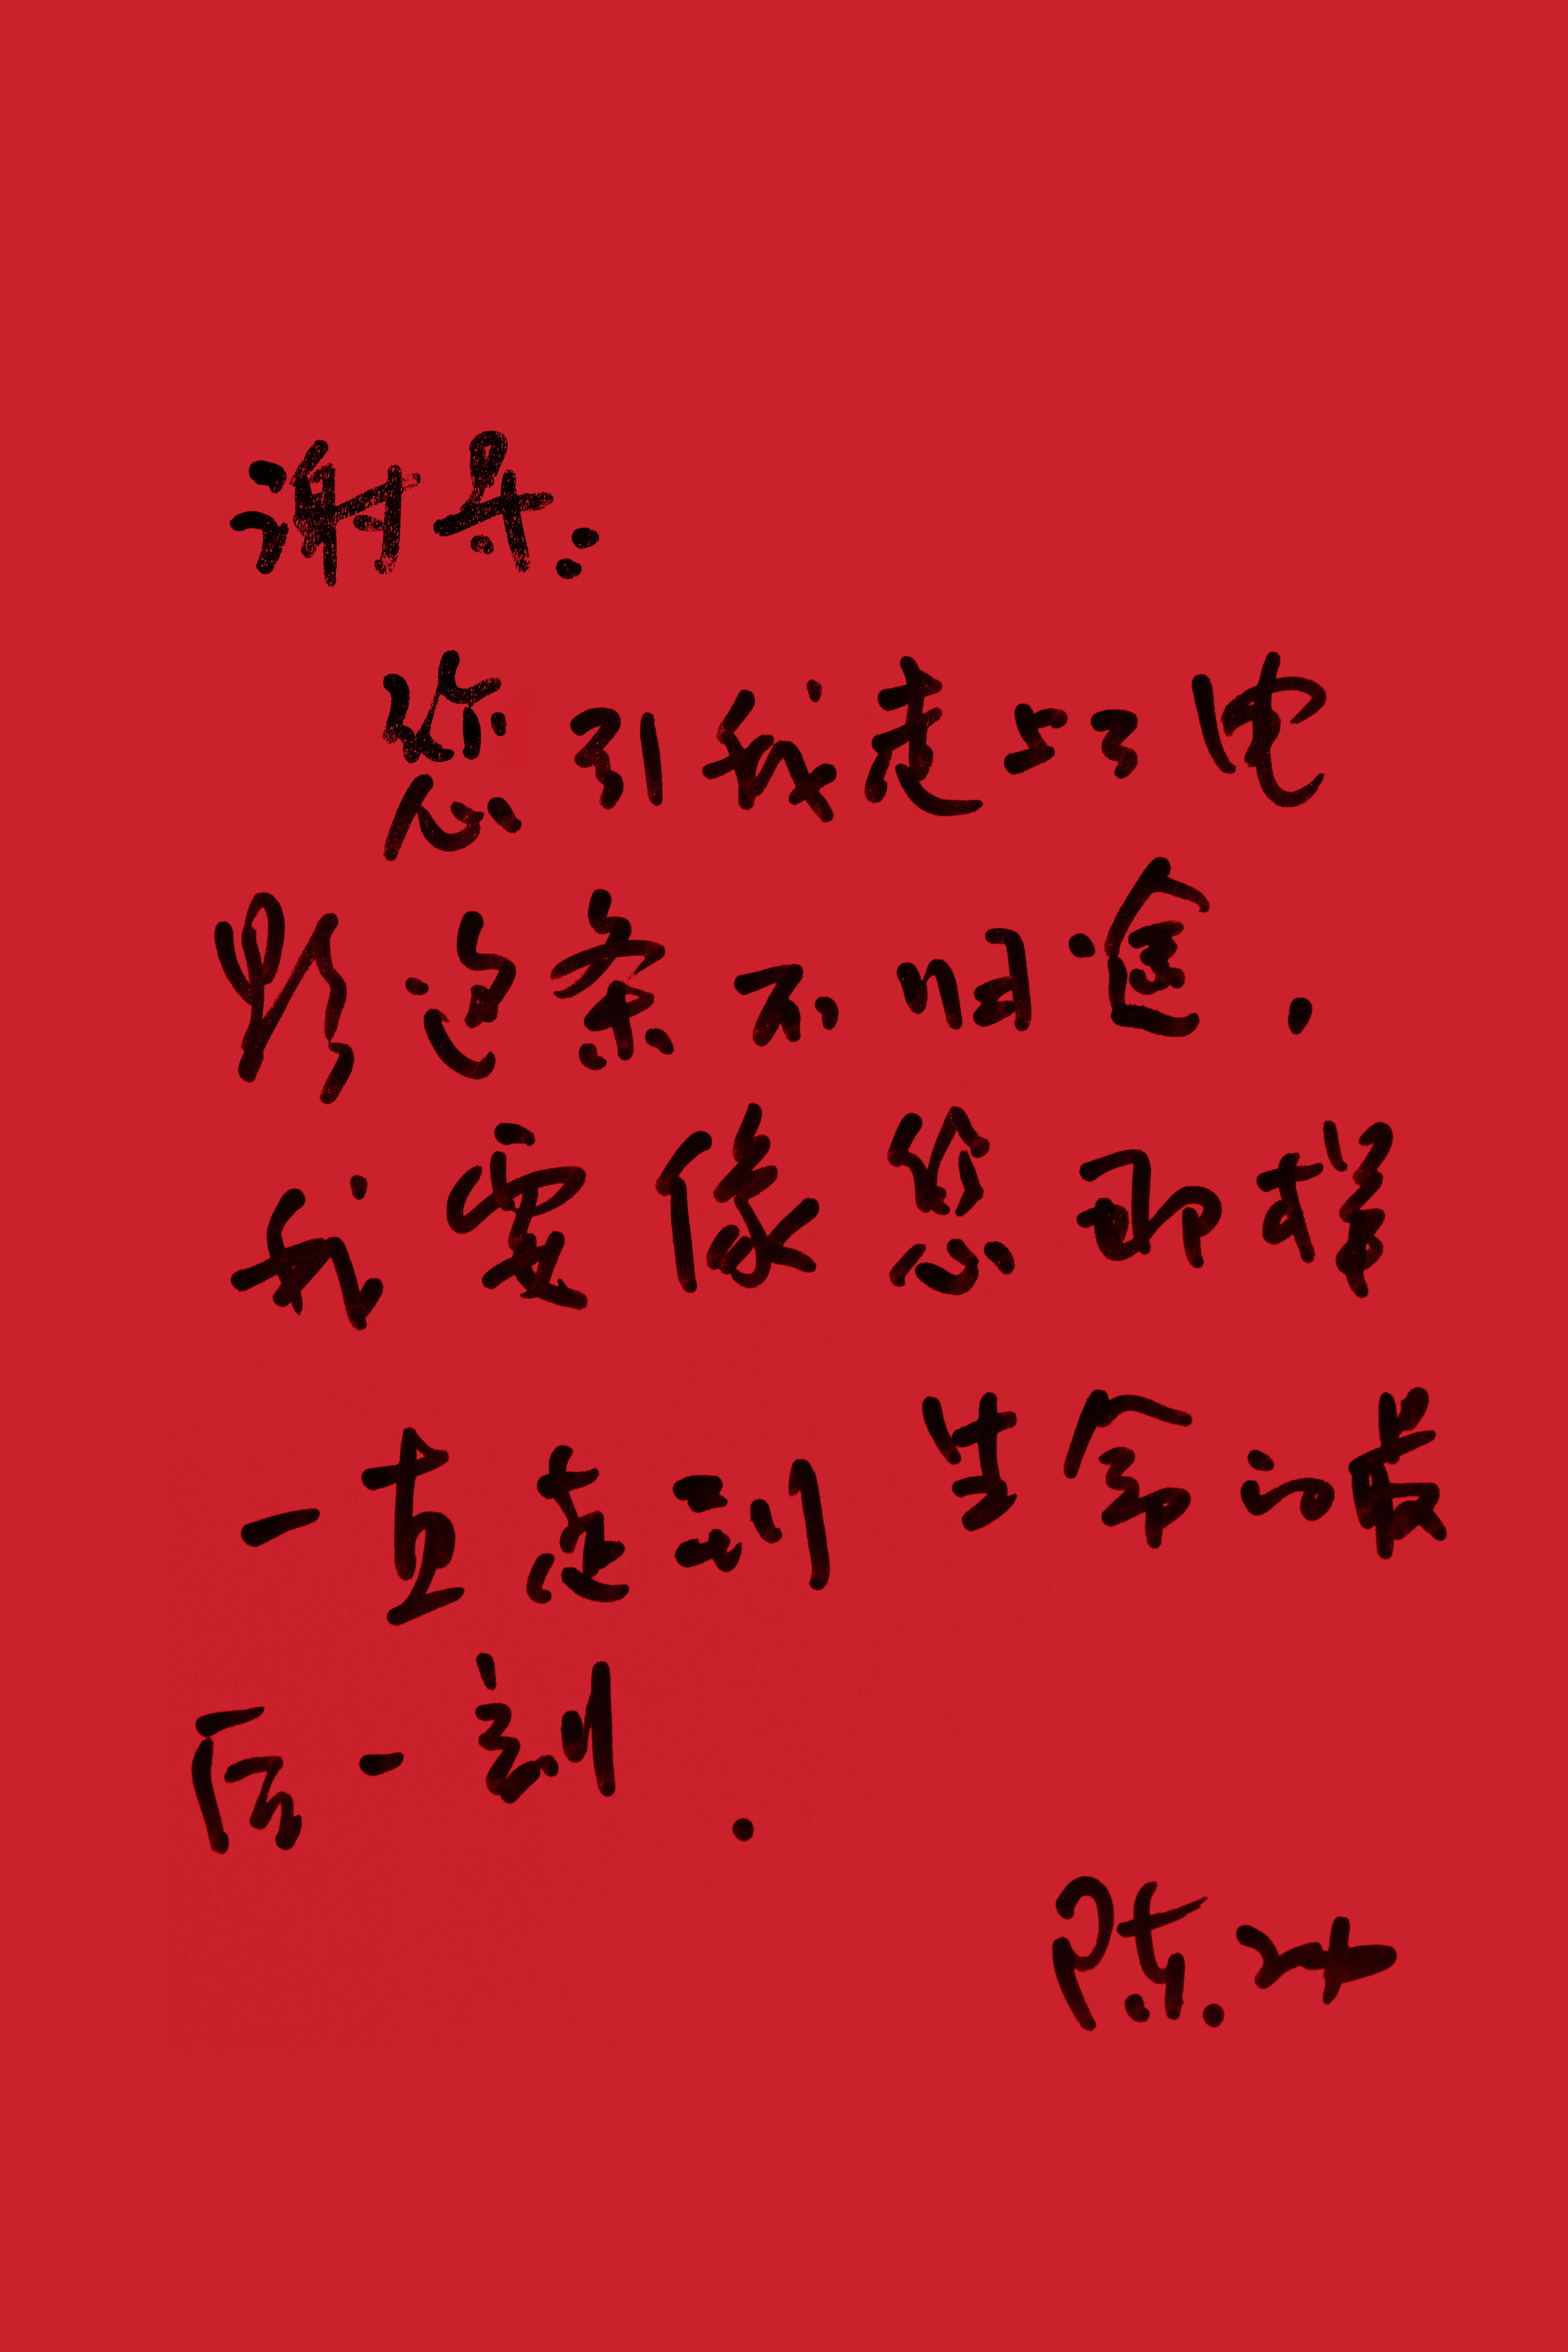 谢晋:
您引我走上了电
影这条不归途.
我要像您那样
一直走到生命的最
后一刻.
陈冲